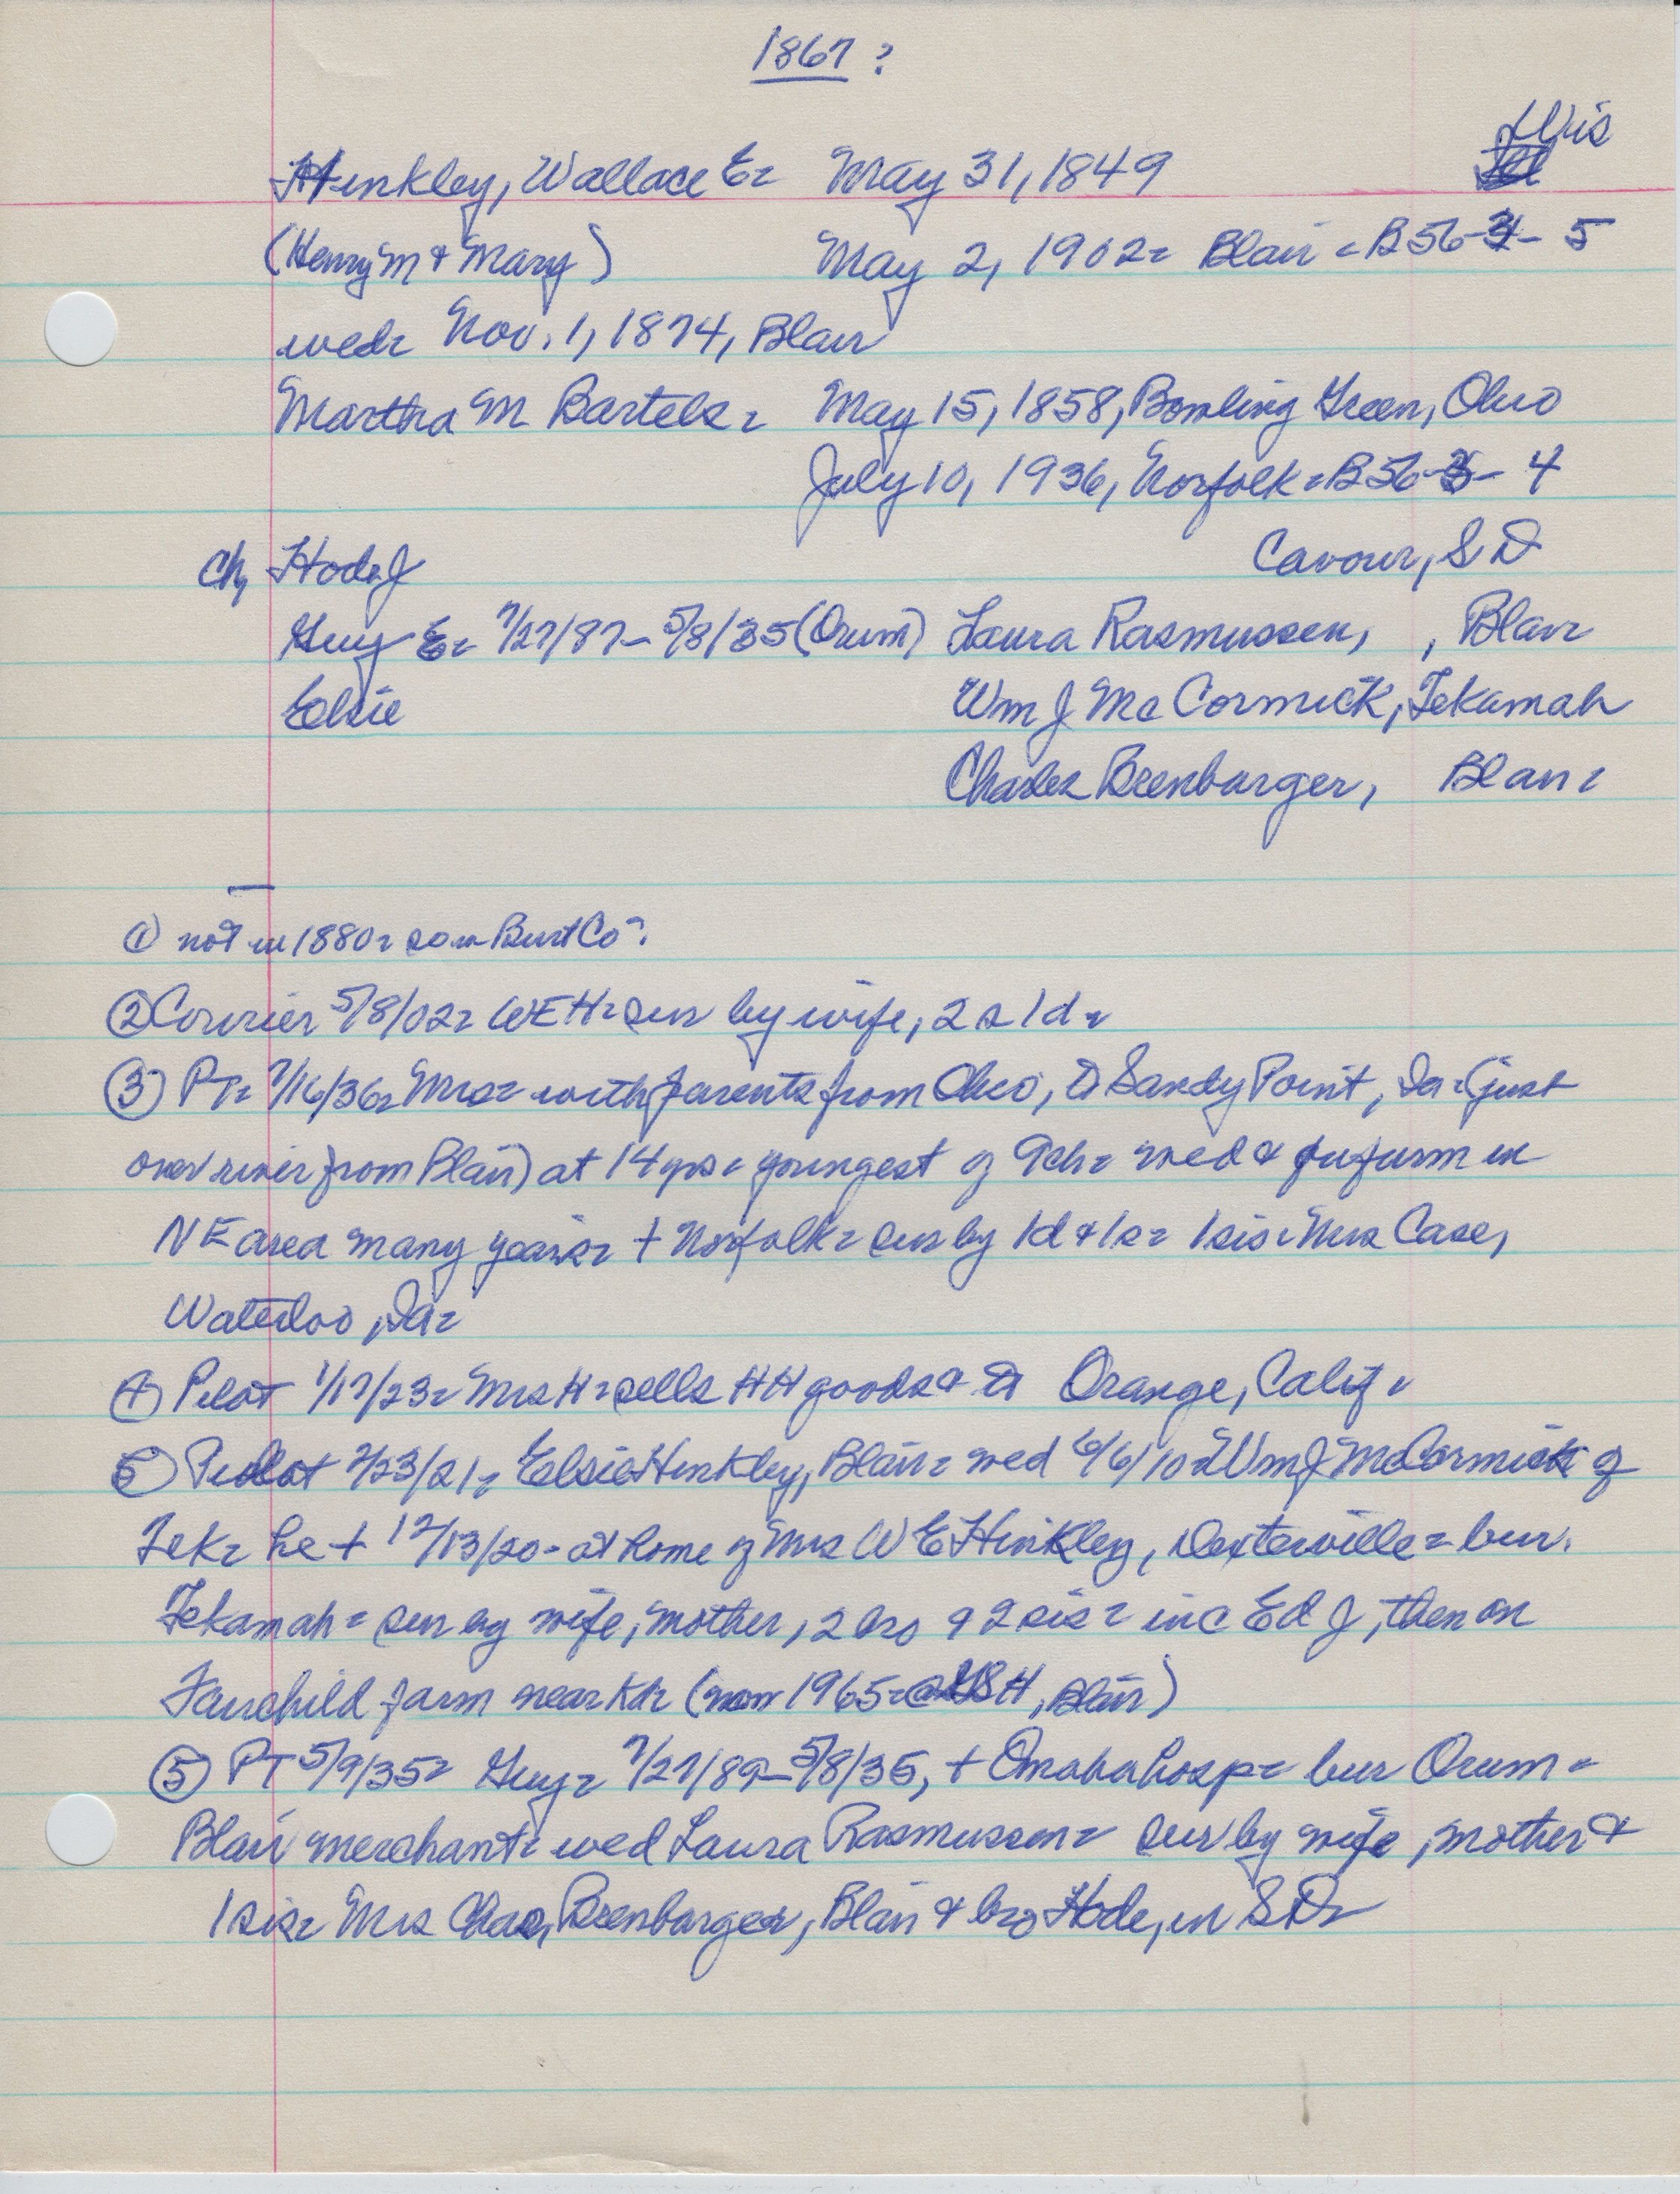 1867 ?
Wis
Hinkley, Wallace E= May 31, 1849
(Henry M & Mary) May 2, 1902= Blair = B56-3- 5
wed= Nov. 1, 1874, Blair
Martha M Bartels= May 15, 1858, Bowling Green, Ohio
July 10, 1936, Norfolk = B56- - 4
Ch, Hode J Cavour, S D
Guy E= 7/27/87- 5/8/35 (Orum) Laura Rasmussen, , Blair=
Elsie Wm J McCormick, Tekamah
Charles Beenbarger, Blair=
① not in 1880= so in Burt Co?.
② Courier 5/8/02= WEH= sur by wife, 2 s 1 d=
③ PT= 7/16/36= Mrs= with parents from Ohio, to Sandy Point, Ia= (just
over river from Blair) at 14 yrs = youngest of 9 ch= wed & farm in
NE area many years= + Norfolk= sur by 1d & 1s= 1 sis= Mrs Case,
Waterloo, Ia=
④ Pilot 1/17/23= Mrs H= sells HH goods & to Orange, Calif=
Pilot 2/23/21= Elsie Hinkley, Blair= wed 6/6/10= Wm J McCormick of
Tek= he + 12/13/20- at home of Mrs W E Hinkley, Dexterville= bur.
Tekamah= sur by wife, mother, 2 bro & 2 sis= inc Ed J, then on
Fairchild farm near (now 1965= @ H, Blair)
⑤ PT 5/9/35= Guy= 7/27/89-5/8/35, + Omaha hosp= bur Orum=
Blair merchant= wed Laura Rasmussen= sur by wife, mother &
1 sis= Mrs Chas, Beenbarger, Blair & bro Hode, in S D=